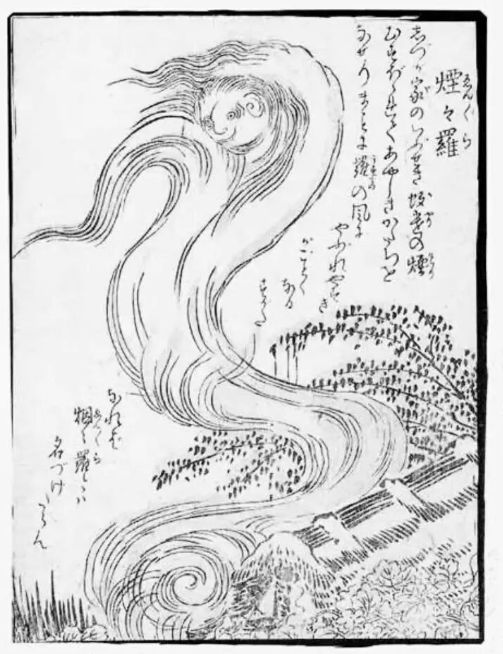 煙々羅
しづが家のいぶせき蚊遣の煙
むすぼゝれてあやしきかたちを
なせりまことに羅の風に
やぶれやすき
がごとく
なる
すがた
なれば
烟々羅とは
名づけたらん